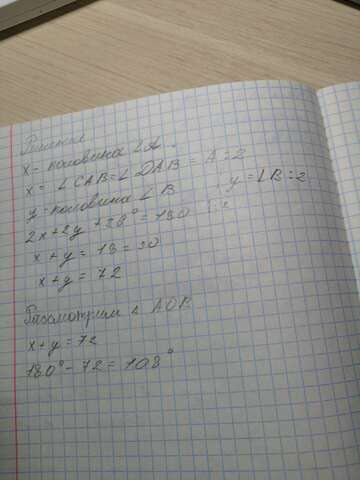 Решение
x - половина ∠A.
x = ∠CAB = ∠DAB = A : 2
y - половина ∠B y = ∠B : 2
2x + 2y + 38° = 180 | : 2
x + y = 18 = 90
x + y = 72
Рассмотрим ∆ AOB
x + y = 72
180° - 72 = 108°